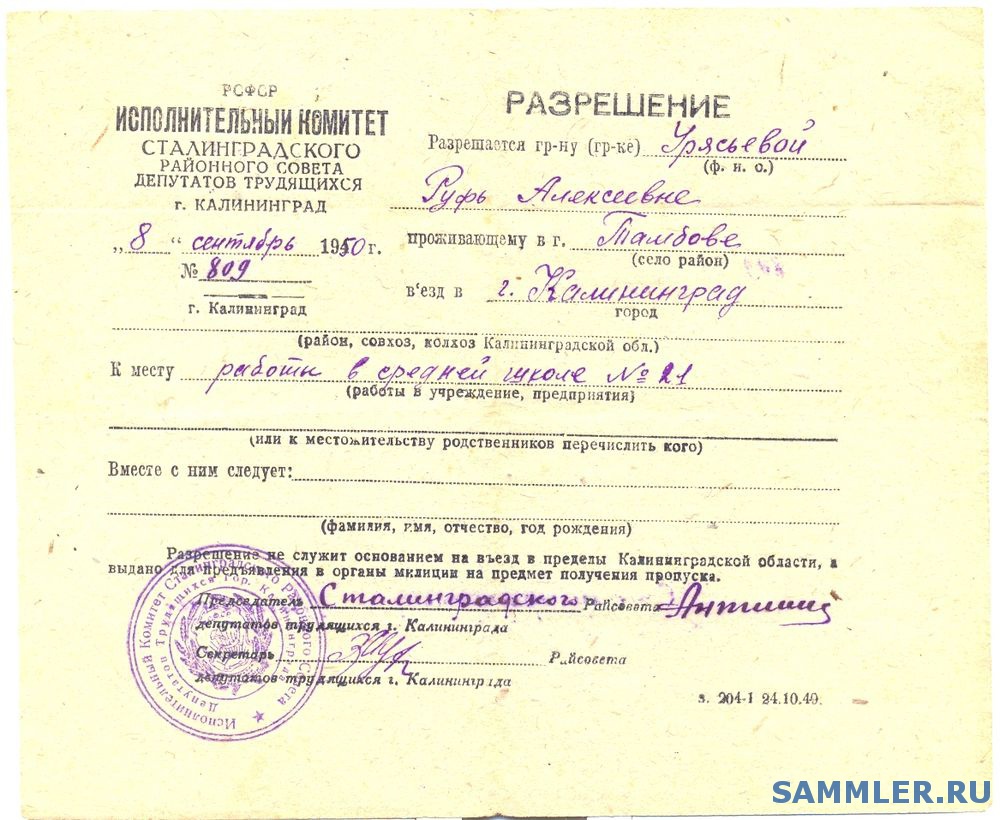 РСФСР
ИСПОЛНИТЕЛЬНЫЙ КОМИТЕТ
СТАЛИНГРАДСКОГО
РАЙОННОГО СОВЕТА
ДЕПУТАТОВ ТРУДЯЩИХСЯ
г. КАЛИНИНГРАД
„8 “ сентябрь 1950 г.
№ 809
г. Калининград
РАЗРЕШЕНИЕ
Разрешается гр-ну (гр-ке) Урясьевой
(ф. и. о.)
Руфь Алексеевне
проживающему в г. Тамбове
(село район)
в'езд в г. Калининград
город
(район, совхоз, колхоз Калининградской обл.)
К месту работы в средней школе № 21
(работы в учреждение, предприятия)
(или к местожительству родственников перечислить кого)
Вместе с ним следует:
(фамилия, имя, отчество, год рождения)
Разрешение не служит основанием на въезд в пределы Калининградской области, а
выдано для предъявления в органы милиции на предмет получения пропуска.
Председатель Сталинградского Райсовета
депутатов трудящихся г. Калининграда
Секретарь Райсовета
депутатов трудящихся г. Калининграда
з. 204-1 24.10.49.
Исполнительный Комитет Сталинградского Районного Совета
Депутатов Трудящихся гор. Калининграда
SAMMLER.RU